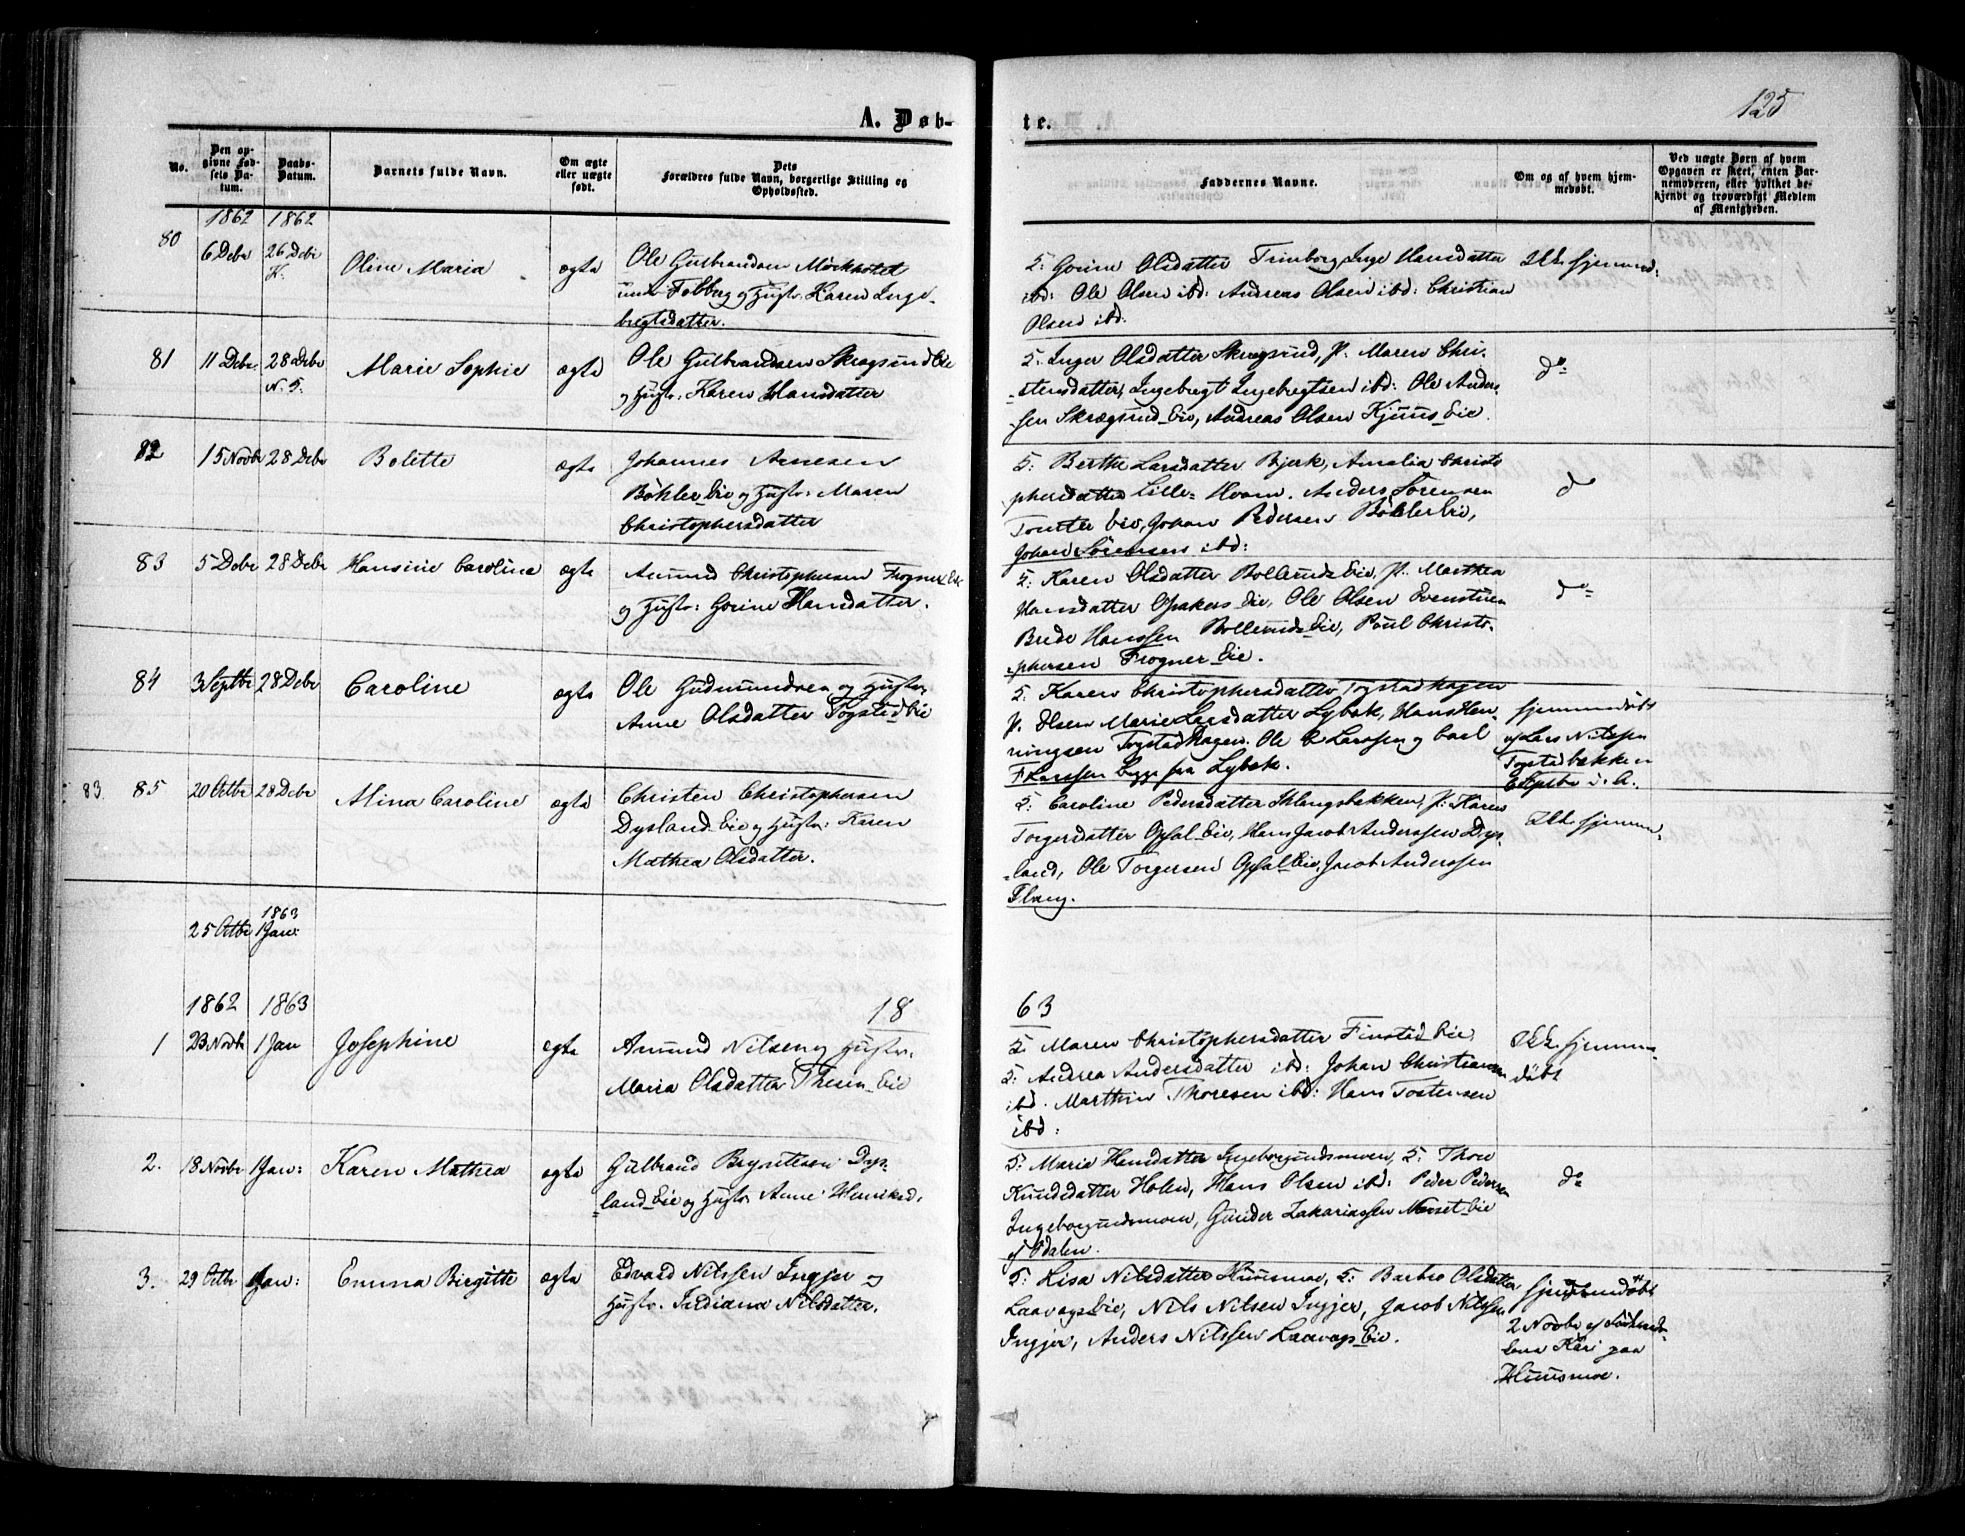 125
A. Døb-
te.
No.
Den op-
givne Fød-
sels Da-
tum.
Daabs-
Datum.
Barnets fulde Navn.
Om ægte
eller uægte
født.
Dets
Forældres fulde Navn, borgerlige Stilling og
Opholdssted.
Faddernes Navne.
Om og af hvem hjem-
medøbt.
Ved uægte Børn af hvem
Opgaven er skeet, enten Bar-
nemoderen, eller hvilket be-
kjendt og troværdigt Medlem
af Menigheden.
1862 1862
80
6 Debr
26 Debr
K.
Oline Maria
ægte
Ole Gulbrandsen Mörkhölet
under Folberg og Hustr: Karen Inge-
bregtsdatter.
5: Gorine Olsdatter Trinborg, Inge Hansdatter
ibd: Ole Olsen ibd: Andreas Olsen ibd: Christian
Olsen ibd.
Ikk. hjemmed:
81
11 Debr.
28 Debr
N. 5.
Marie Sophie
ægte
Ole Gulbrandsen Skrægsund Eie
og Hustr: Karen Hansdatter
5. Inger Olsdatter Skrægsund, P. Maren Chri-
stensdatter, Ingebregt Ingebregtsen ibd: Ole Ander-
sen Skrægsund Eie, Andreas Olsen Kjuus Eie.
do
82
15 Novbr
28 Debr
Bolette
ægte
Johannes Arnesen
Böhler Eie og Hustr: Maren
Christophersdatter
5: Berthe Larsdatter Bjerk, Amalia Christo
phersdatter Lille-Hvam. Anders Sörensen
Tomter Eie, Johan Pedersen Böhler Eie,
Johan Sörensen ibd:
do
83
5 Debr
28 Debr
Hansine Carolina
ægte
Amund Christophersen Frogner Eie
og Hustr: Gorine Hansdatter.
5: Karen Olsdatter Bollerud Eie, P: Marthea
Hansdatter Opakers Eie, Ole Olsen Evenstuen
Brede Hanssen Bollerud Eie, Poul Christo-
phersen Frogner Eie.
do
84
3 Septbr
28 Debr
Caroline
ægte
Ole Gudmundsen og Hustr:
Anne Olsdatter Togsted Eie
5. Karen Christophersdatter Togstadhagen
P. Olsen Marie Larsdatter Lybæk, Hans Hen-
ningsen Togstadhagen. Ole Larssen og Carl
F Larssen begge fra Lybæk.
hjemmedöbt
af Lars Nilssen
Togstedbakken
Septbr i. A.
83.
85
20 Octbr
28 Debr
Alina Caroline
ægte
Christen Christophersen
Dysland Eie og Hustr: Karen
Mathea Olsdatter.
5: Caroline Pedersdatter Slangsbakken, P: Karen
Torgersdatter Opsal Eie, Hans Jacob Anderssen Dys-
land, Ole Torgersen Opsal Eie, Jacob Anderssen
Slang.
Ikk. hjemm.
25 Octbr
1863
1 Jan:
1862 1863
18
63
1
23 Novbr
1 Jan
Josephine
ægte
Amund Nilsen og Hustr.
Maria Olsdatter Thesen Eie
5. Maren Christophersdatter Finstad Eie,
5: Andrea Andersdatter ibd: Johan Christiansen
ibd. Marthin Thoresen ibd: Hans Tostensen
ibd:
Ikk. hjemme-
döbt
2.
18 Novbr
1 Jan:
Karen Mathea
ægte
Gulbrand Bryntesen Dys-
land Eie og Hustr Anne Henriksd.
5: Maria Hansdatter Ingeborgrudsmoen, 5: Thon
Knudsdatter Holen, Hans Olsen ibd: Peder Pedersen
Ingeborgrudsmoen, Gunder Zakariassen Næset Eie
af Odalen.
do
3.
29 Octbr
1 Jan:
Emma Birgitte
ægte
Edvard Nilssen Ingjer og
Hustr. Indiana Nilsdatter.
5: Lisa Nilsdatter Huusmoe, 5: Barbro Olsdatter
Laavags Eie, Nils Nilsen Ingjer, Jacob Nilssen
Ingjer, Anders Nilssen Laavags Eie.
hjemmedöbt
2 Novbr af
Kari paa
Huusmoe.